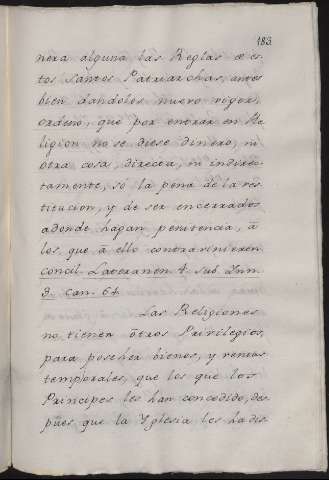 183
nera alguna las Reglas de es-
tos Santos Patriarchas, antes
bien dandoles nuevo vigor,
ordeno, que por entrar en Re-
ligion no se diese dinero, ni
otra cosa, directa, ni indirec-
tamente, so la pena de la res-
titucion, y de ser encerrados
adonde hagan penitencia, â
los que â ello contravinieren.
Concil. Lateranen. 4. sub. Inn.
3. can. 64.
Las Religiones
no tienen ôtros Privilegios,
para poseher bienes, y rentas
temporales, que los que los
Principes les han concedido, des-
pues que la Yglesia les ha dis-